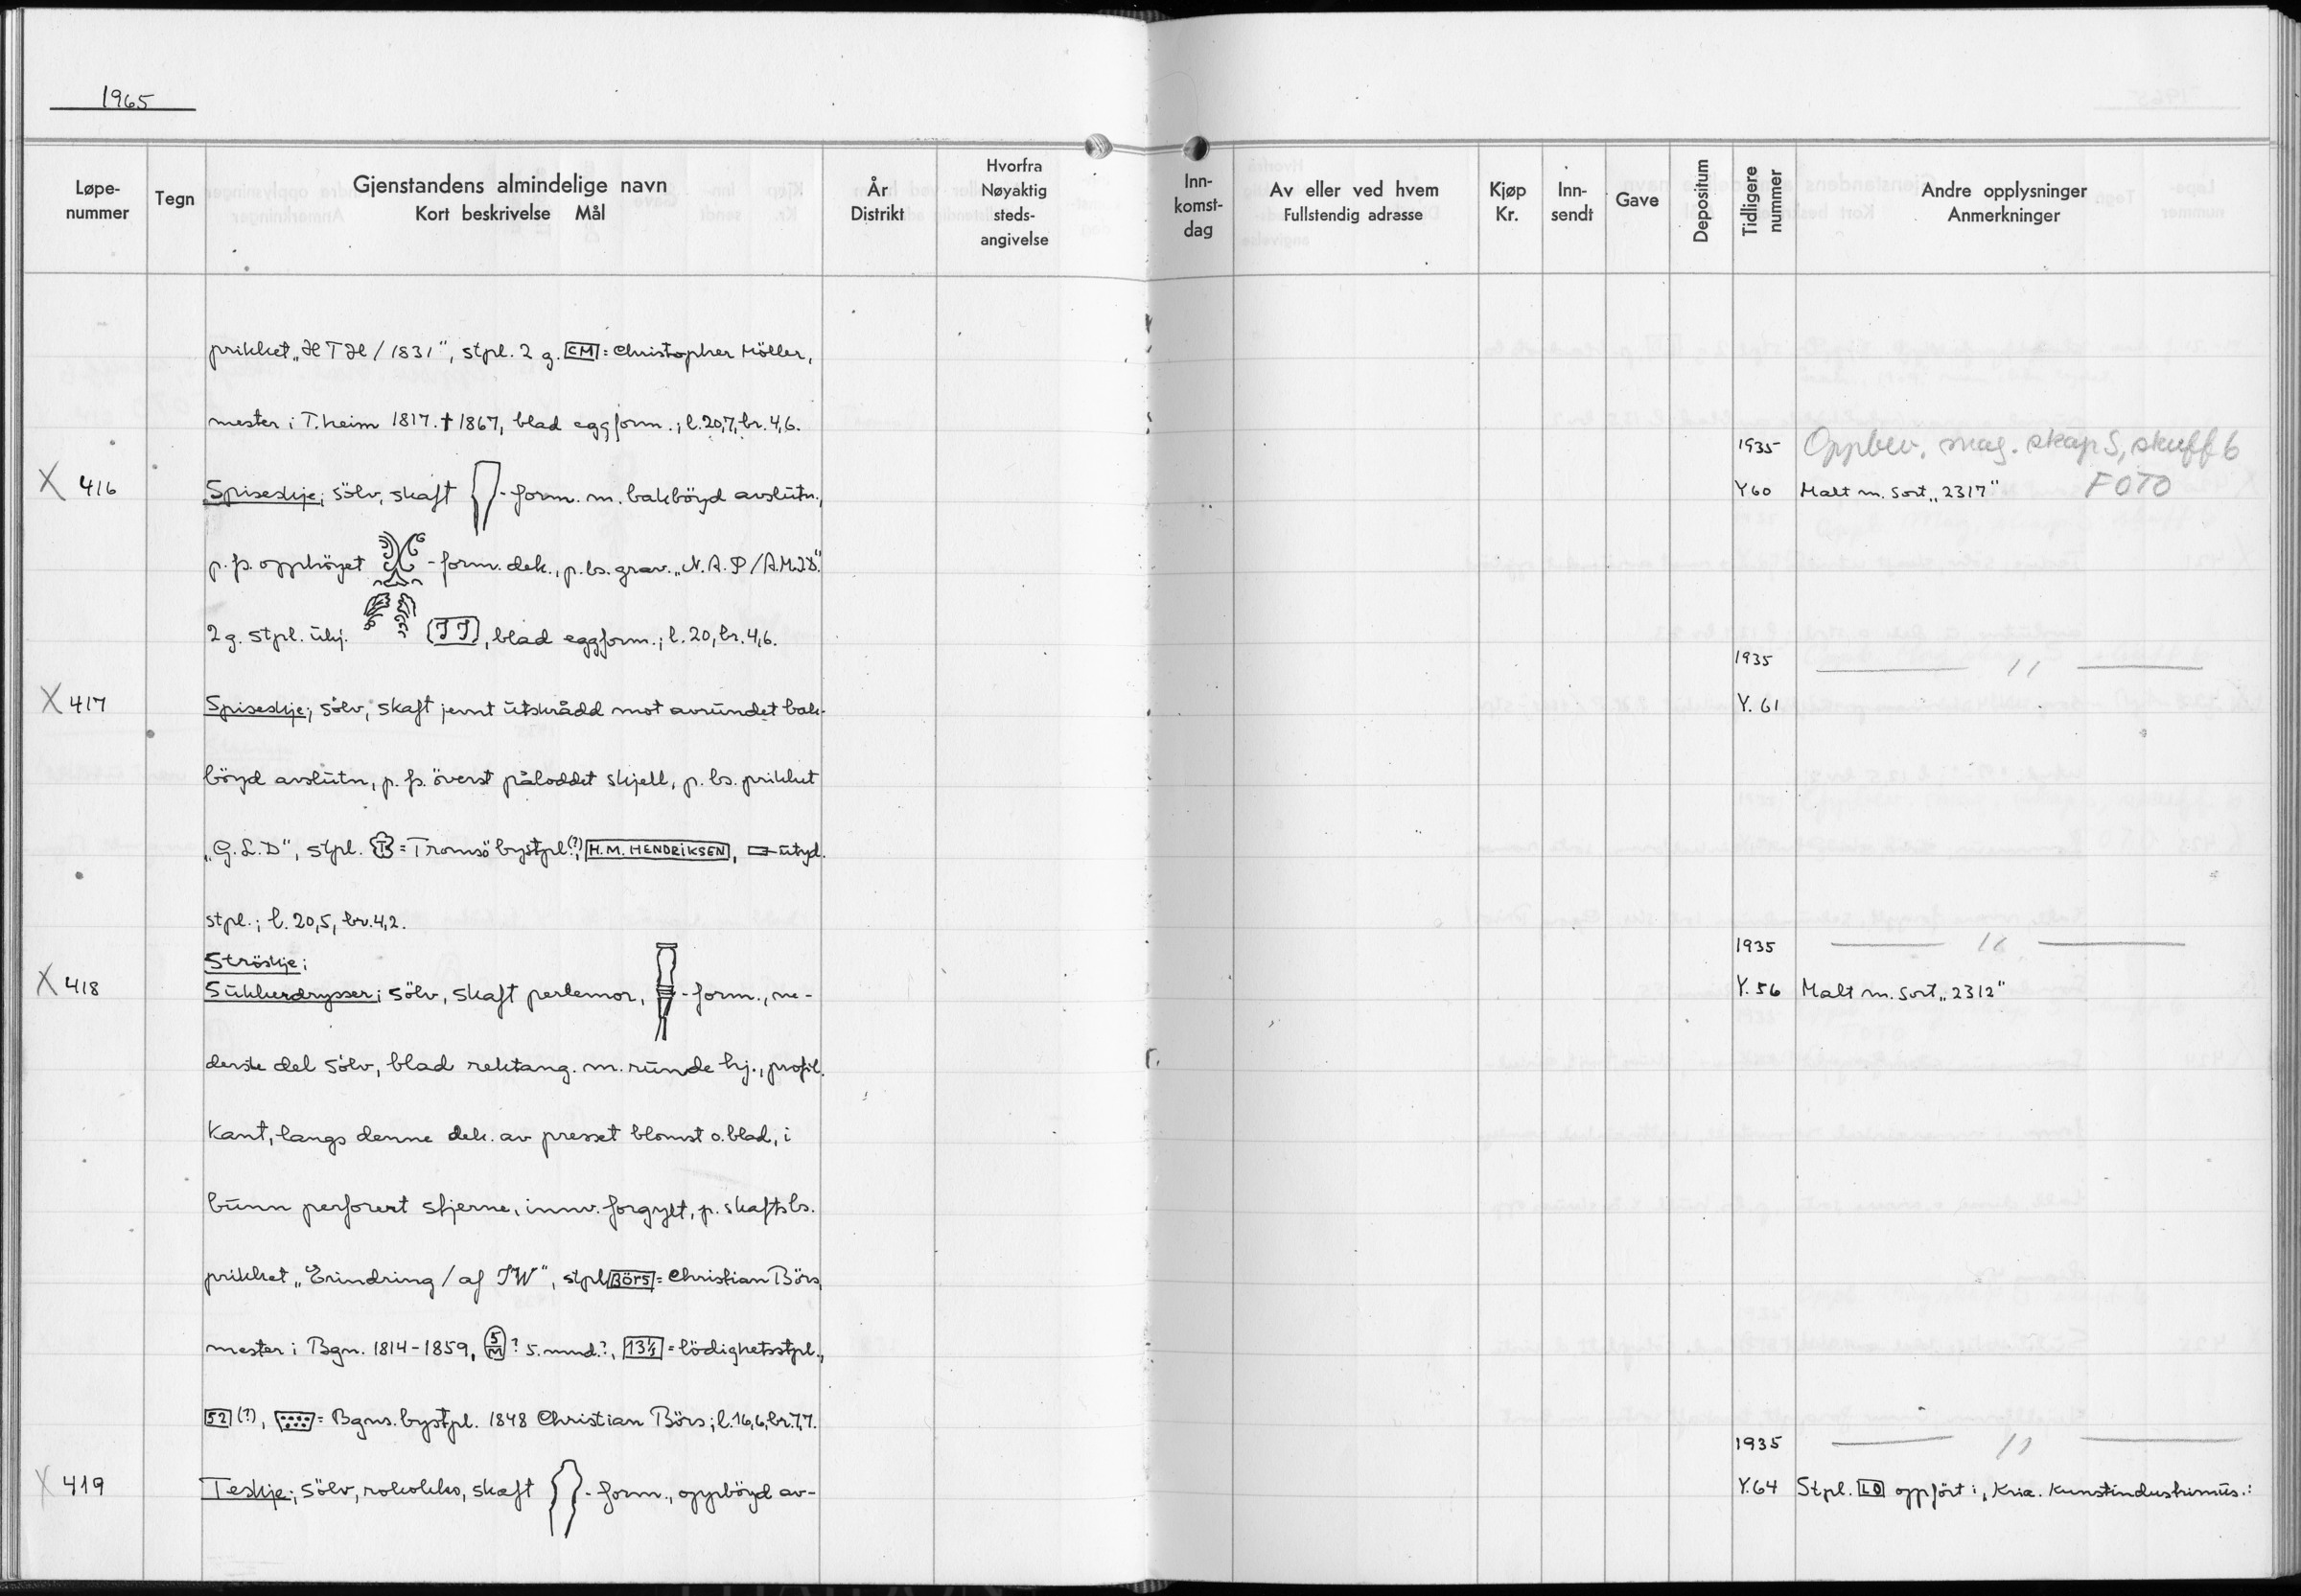 1965
Løpe-
nummer
Tegn
Gjenstandens almindelige navn
Kort beskrivelse Mål
År
Distrikt
Hvorfra
Nøyaktig
steds-
angivelse
Inn-
komst-
dag
Av eller ved hvem
Fullstendig adresse
Kjøp
Kr.
Inn-
sendt
Gave
Depositum
Tidligere
nummer
Andre opplysninger
Anmerkninger
prikket „HTH / 1831", stpl. 2 g. CM = Christopher Möller,
mester i T.heim 1817. † 1867, blad eggform.; l. 20,7, br. 4,6.
1935 Oppbev. mag. skap S, skuff 6
X 416 Spiseskje; sölv, skaft -form. m. bakböyd avslutn., Y60 Malt m. sort „2317" FOTO
p. fs. opphöyet -form. dek., p. bs. grav. „N.A.P/A.M.J.D."
2 g. stpl. ukj. JJ, blad eggform.; l. 20, br. 4,6.
1935 — 11 —
X 417 Spiseskje; sölv, skaft jevnt utskrådd mot avrundet bak- Y. 61
böyd avslutn, p. fs. överst påloddet skjell, p. bs. prikket
„G.L.D", stpl. T = Tromsö bystpl.(?), H.M. HENDRIKSEN, utyd.
stpl.; l. 20,5, br. 4,2.
Ströskje; 1935 — 11 —
X 418 Sukkerdrysser; sölv, skaft perlemor, -form., ne- Y. 56 Malt m. sort „2312"
derste del sölv, blad rektang. m. runde hj., profil.
kant, langs denne dek. av presset blomst o. blad, i
bunn perforert stjerne, innv. forgylt, p. skafts bs.
prikket „Erindring / af JW", stpl BÖRS = Christian Börs,
mester i Bgn. 1814-1859, 5 M ? 5. mnd.?, 13⅓ = lödighetsstpl.,
52 (?), = Bgns. bystpl. 1848 Christian Börs; l. 16,6, br. 7,7.
1935 — 11 —
X 419 Teskje; sölv, rokokko, skaft -form., oppböyd av- Y.64 Stpl. LD oppfört i, Kria. Kunstindustrimus.: